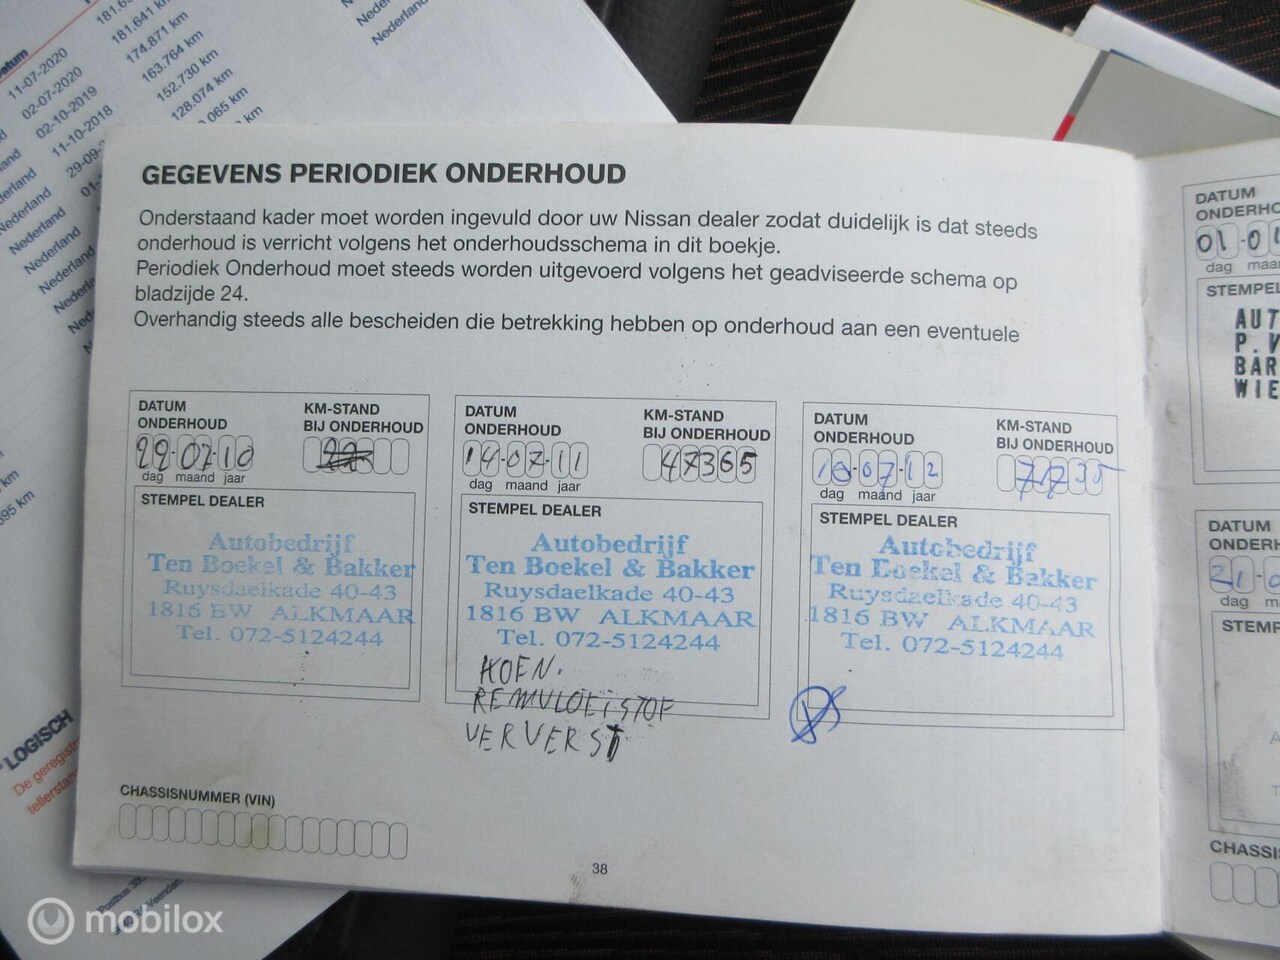 Datum
11-07-2020
02-07-2020
02-10-2019
11-10-2018
181.641 km
174.871 km
163.764 km
152.730 km
128.074 km
Nederland
Nederland
Nederland
Nederland
Nederland
Nederland
LOGISCH
GEGEVENS PERIODIEK ONDERHOUD
Onderstaand kader moet worden ingevuld door uw Nissan dealer zodat duidelijk is dat steeds
onderhoud is verricht volgens het onderhoudsschema in dit boekje.
Periodiek Onderhoud moet steeds worden uitgevoerd volgens het geadviseerde schema op
bladzijde 24.
Overhandig steeds alle bescheiden die betrekking hebben op onderhoud aan een eventuele
DATUM
ONDERHOUD
KM-STAND
BIJ ONDERHOUD
29-07-10
dag maand jaar
STEMPEL DEALER
Autobedrijf
Ten Boekel & Bakker
Ruysdaelkade 40-43
1816 BW ALKMAAR
Tel. 072-5124244
DATUM
ONDERHOUD
KM-STAND
BIJ ONDERHOUD
14-07-11
47365
dag maand jaar
STEMPEL DEALER
Autobedrijf
Ten Boekel & Bakker
Ruysdaelkade 40-43
1816 BW ALKMAAR
Tel. 072-5124244
KOEN.
REMVLOEISTOF
VERVERST
DATUM
ONDERHOUD
KM-STAND
BIJ ONDERHOUD
10-07-12
dag maand jaar
STEMPEL DEALER
Autobedrijf
Ten Boekel & Bakker
Ruysdaelkade 40-43
1816 BW ALKMAAR
Tel. 072-5124244
CHASSISNUMMER (VIN)
38
DATUM
dag
DATUM
dag
mobilox